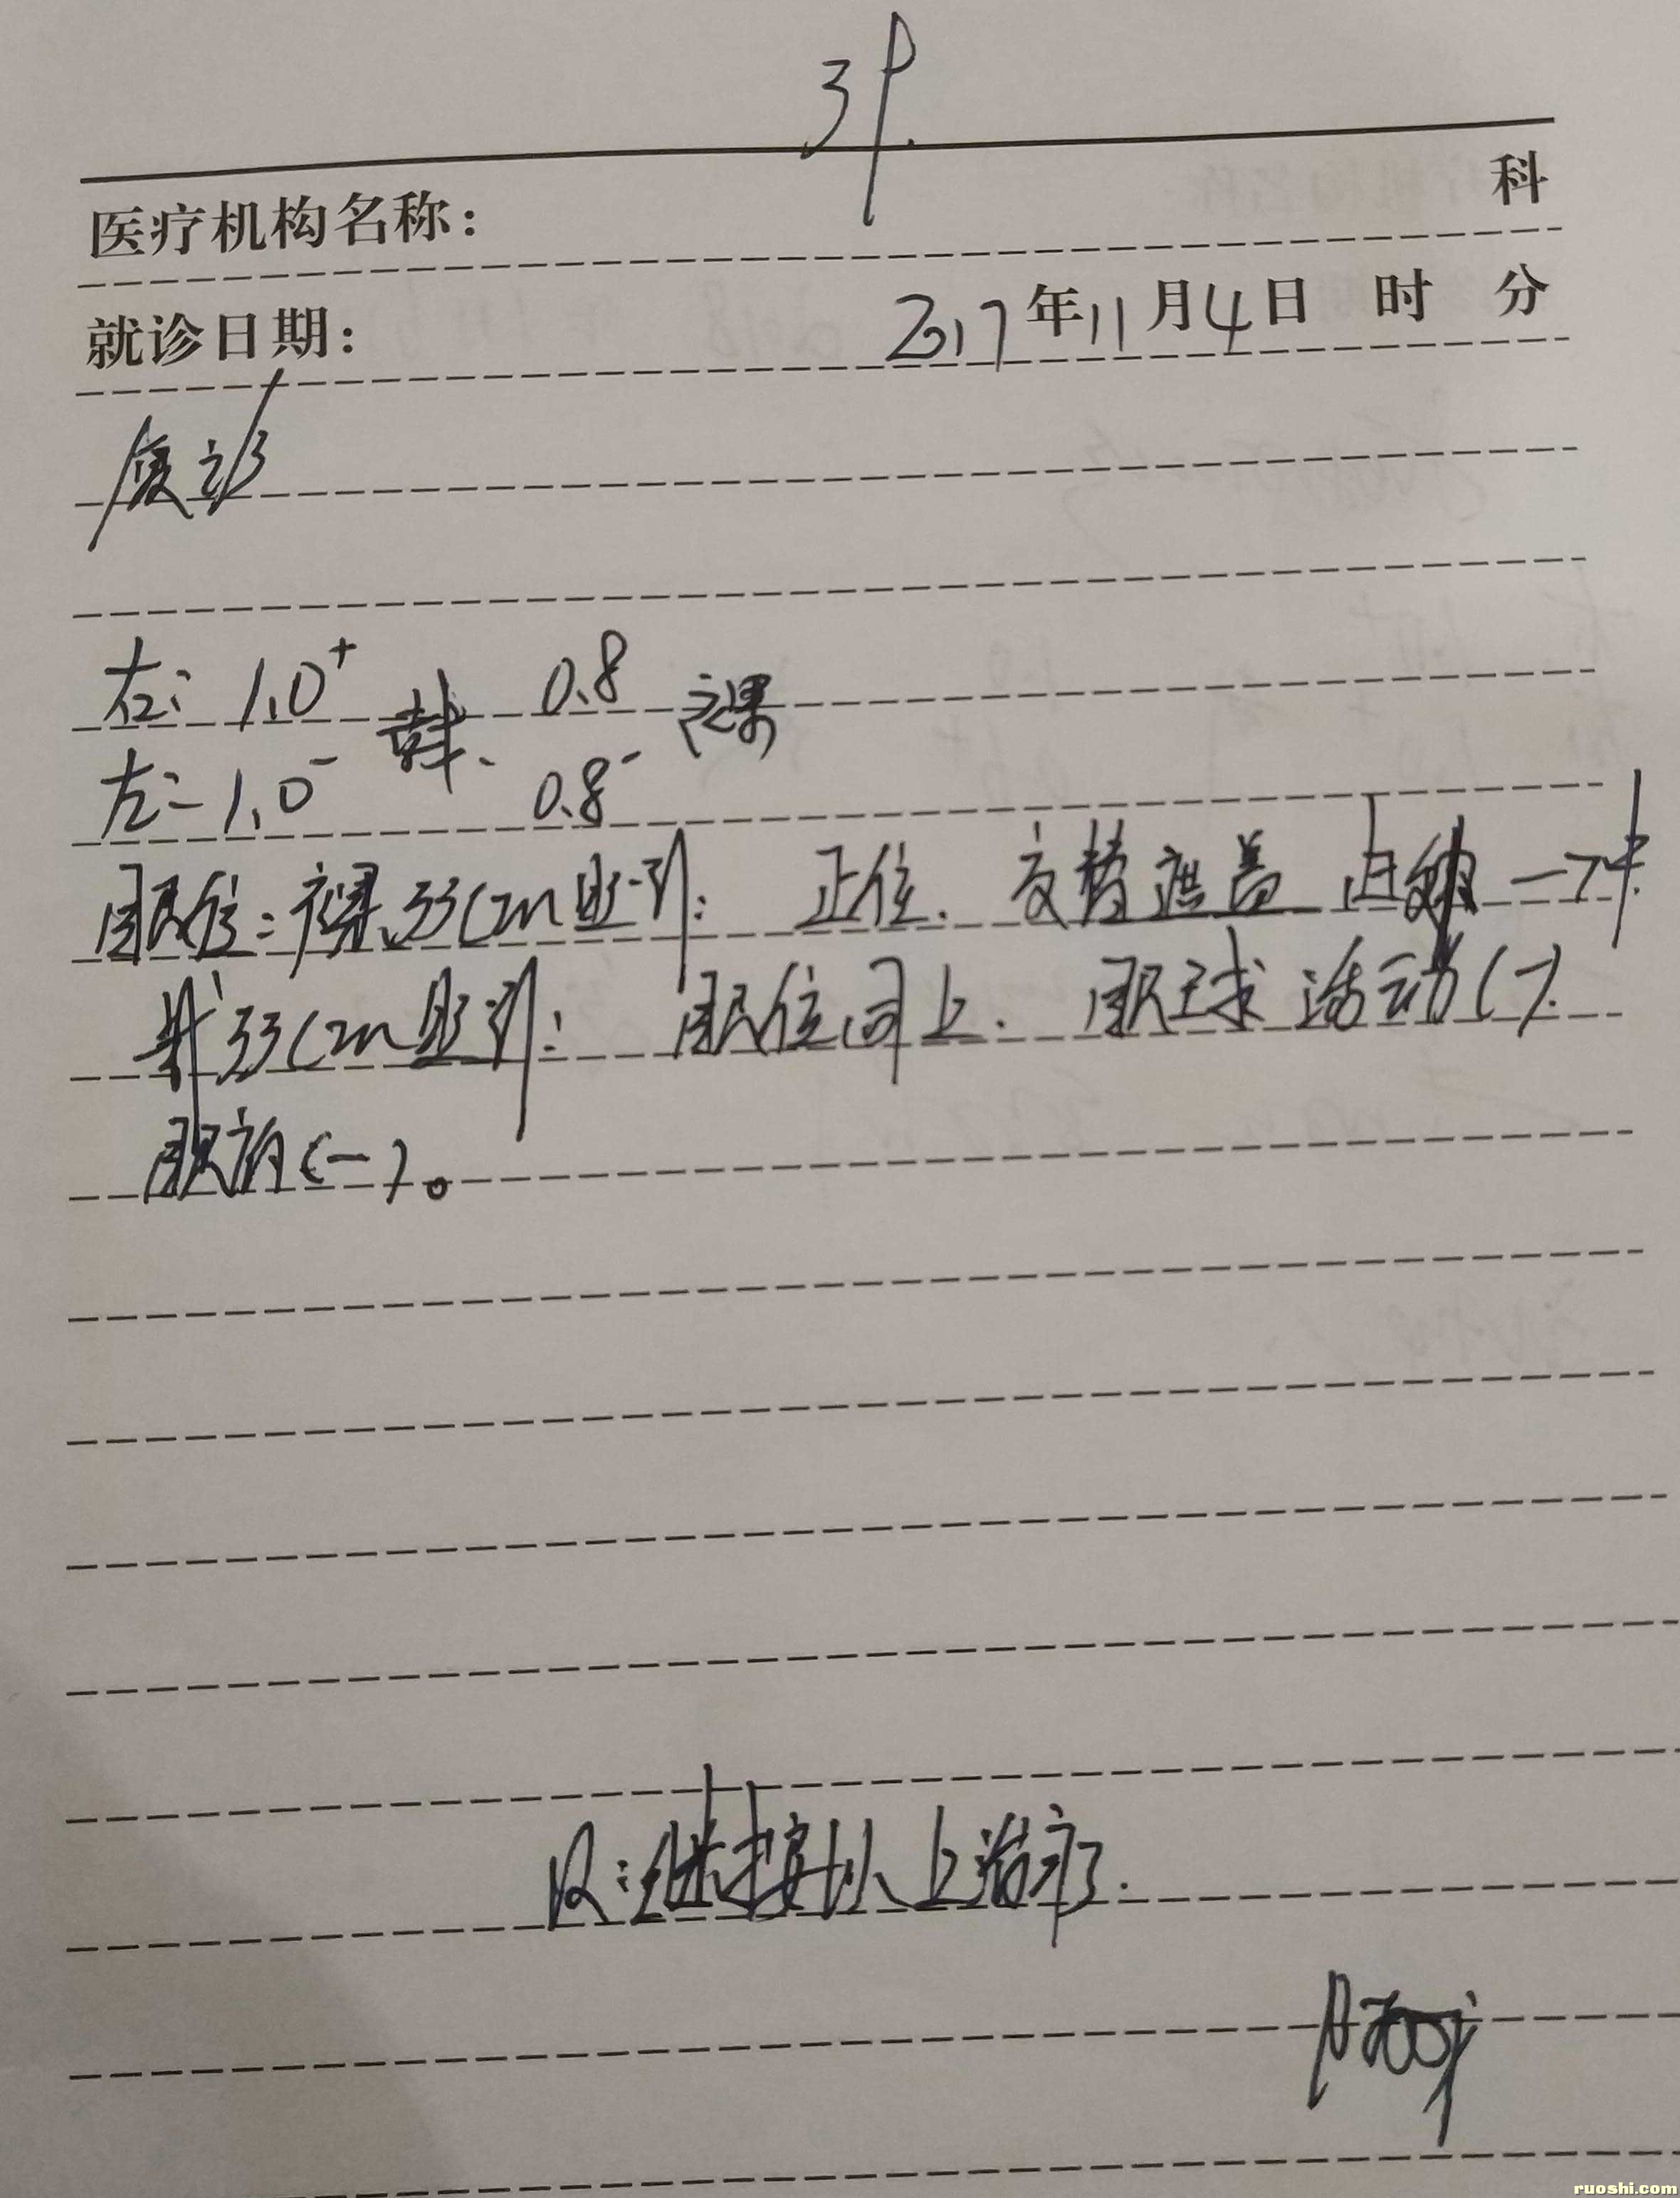 3P.
医疗机构名称： 科
就诊日期： 2017年11月4日 时 分
复诊
右: 1.0⁺ 戴 0.8 (裸)
左: 1.0⁻ 0.8⁻
眼位: 裸 33cm 映引: 正位. 交替遮盖
戴 33cm 映引: 眼位同上. 眼球活动(-).
眼前(-)。
R: 继续按以上治疗.
ruoshi.com